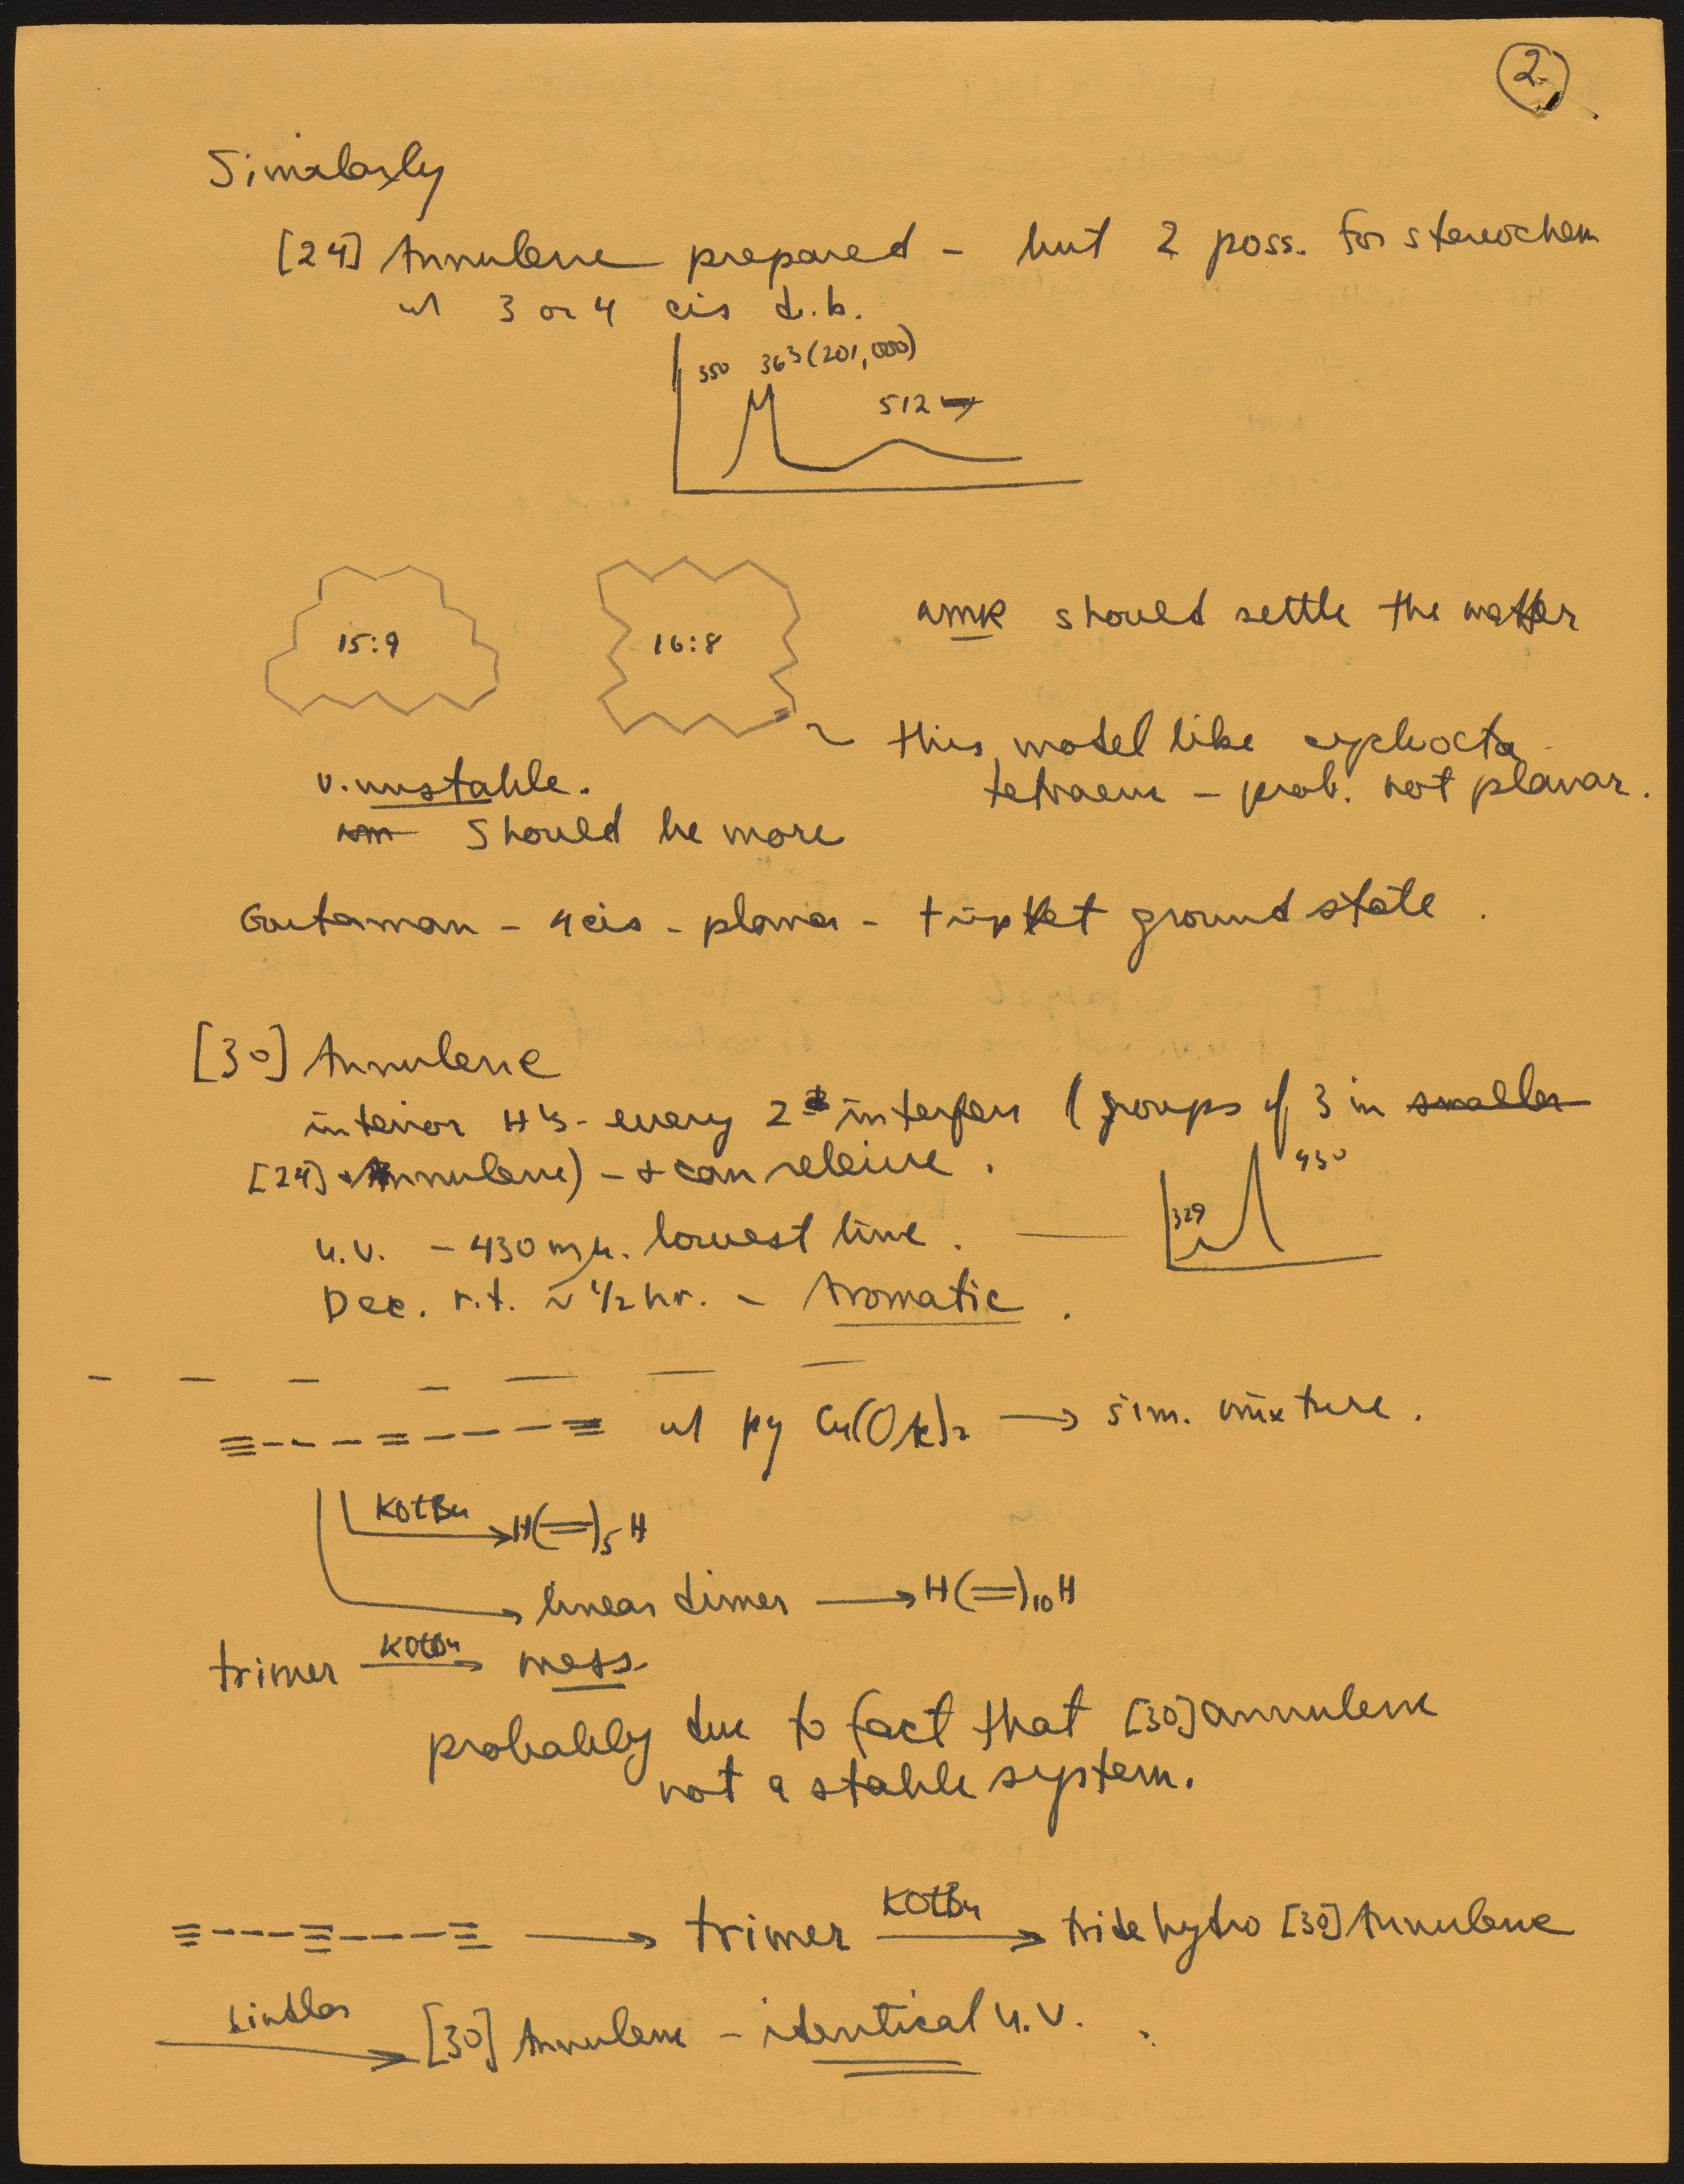 2.
Similarly
[24] Annulene prepared - but 2 poss. for stereochem
w/ 3 or 4 cis d.b.
350 363 (201,000)
512
15:9
16:8
nmr should settle the matter
this model like cycloocta
tetraene - prob. not planar.
v. unstable.
Should be more
Gouterman - 4 cis - planar - triplet ground state.
[30] Annulene
interior H's - every 2 interfere (groups of 3 in smaller
[24] Annulene) - & can relieve.
430
329
u.v. - 430 mμ. lowest line.
Dec. r.t. ~ 1/2 hr. - Aromatic.
≡---=---≡ w/ py Cu(OAc)2 → sim. mixture.
KOtBu → H(=)5H
linear dimer → H(=)10H
trimer KOtBu → mess
probably due to fact that [30] annulene
not a stable system.
≡---≡---≡ → trimer KOtBu → tridehydro [30] Annulene
Lindlar → [30] Annulene - identical u.v.